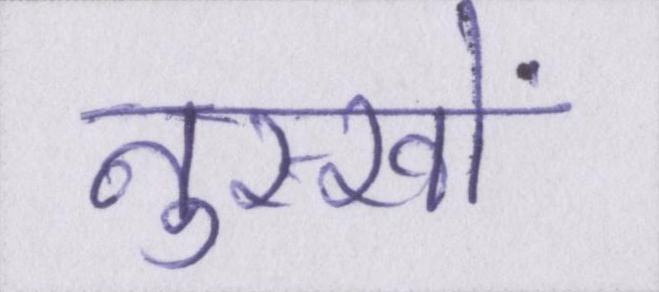 नुस्खों